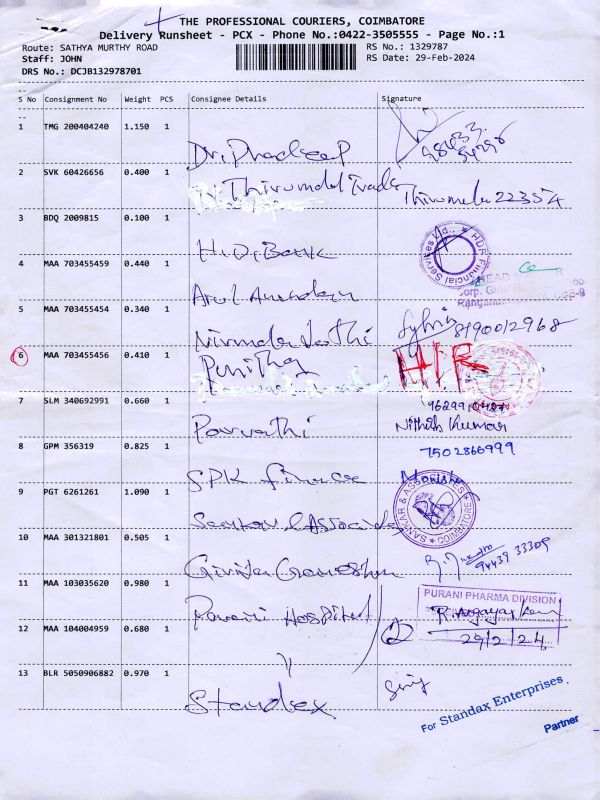 THE PROFESSIONAL COURIERS, COIMBATORE
Delivery Runsheet - PCX - Phone No.:0422-3505555 - Page No.:1
Route: SATHYA MURTHY ROAD
RS No.: 1329787
Staff: JOHN
RS Date: 29-Feb-2024
DRS No.: DCJB132978701
S No Consignment No Weight PCS Consignee Details Signature
1 TMG 200404240 1.150 1
Dr. Pradeep
98433
2 SVK 60426656 0.400 1
Thirumalai Trade
Thirumalai 22354
3 BDQ 2009815 0.100 1
HDB Financial Services
4 MAA 703455459 0.440 1
Arul
5 MAA 703455454 0.340 1
Sylvia 8190012968
6 MAA 703455456 0.410 1
Punitha
7 SLM 340692991 0.660 1
Parvathi
Nithish Kumar
8 GPM 356319 0.825 1
7502866999
SPK finance
Monisha
9 PGT 6261261 1.090 1
Sankar & Associates
SANKAR & ASSOCIATES
COIMBATORE
10 MAA 301321801 0.505 1
94439 33309
11 MAA 103035620 0.980 1
Hospital
PURANI PHARMA DIVISION
12 MAA 104004959 0.680 1
"
29/2/24
13 BLR 5050906882 0.970 1
Standax
For Standax Enterprises.
Partner